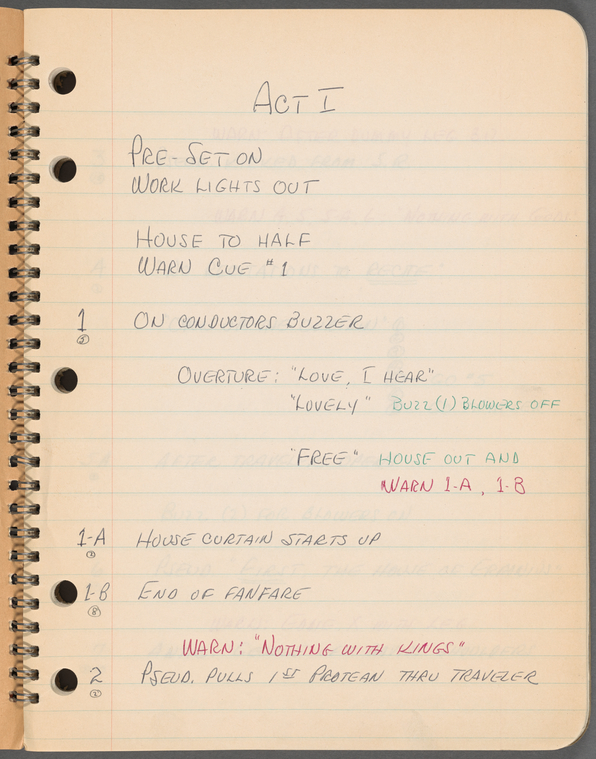 ACT I
PRE-SET ON
WORK LIGHTS OUT
HOUSE TO HALF
WARN CUE #1
1 ON CONDUCTORS BUZZER
OVERTURE: "LOVE, I HEAR"
"LOVELY" BUZZ (1) BLOWERS OFF
"FREE" HOUSE OUT AND
WARN 1-A, 1-B
1-A HOUSE CURTAIN STARTS UP
1-B END OF FANFARE
8
WARN: "NOTHING WITH KINGS"
2 PSEUD. PULLS 1ST PROTEAN THRU TRAVELER